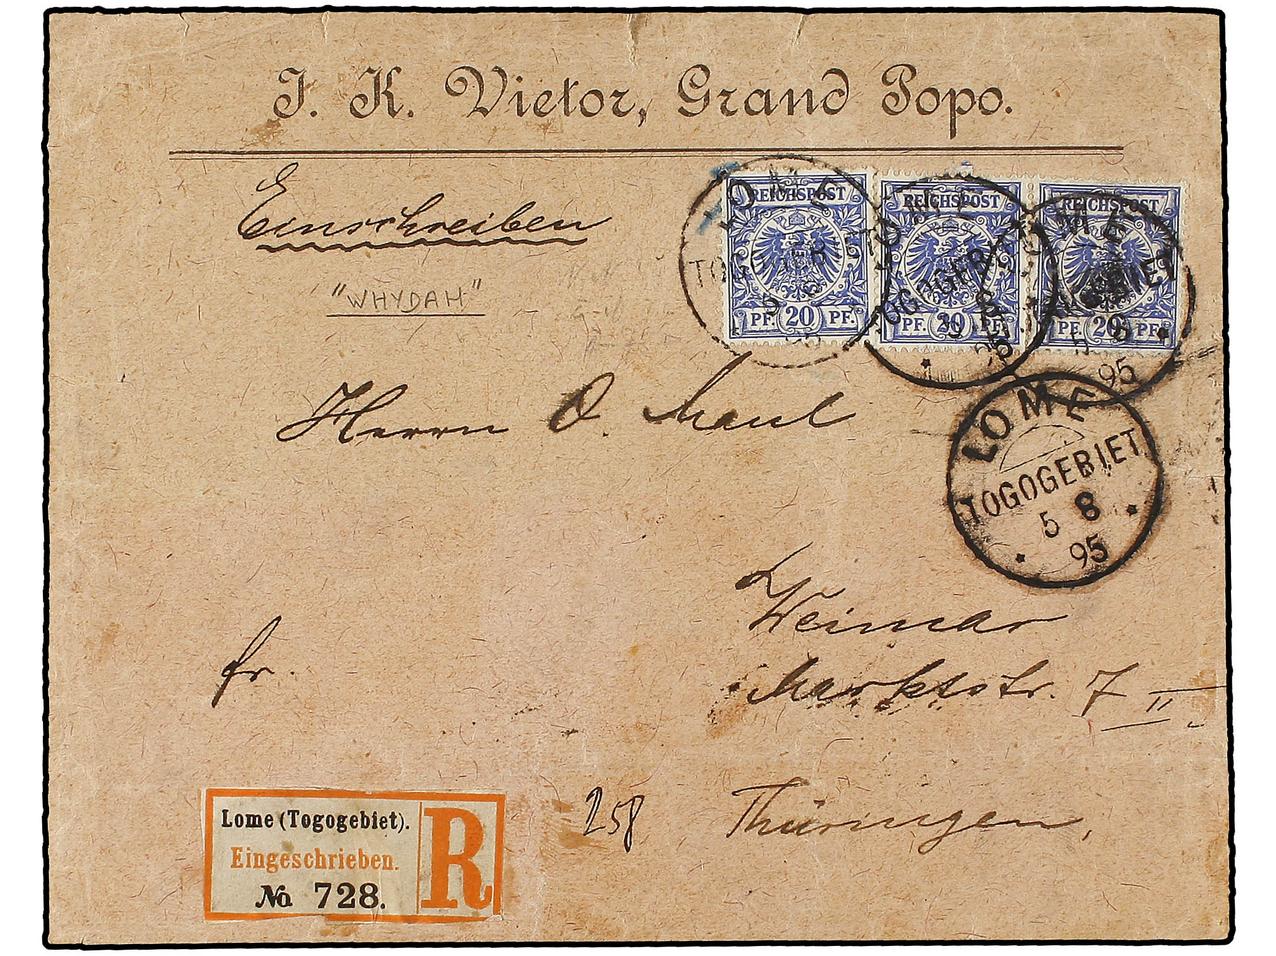 J. K. Vietor, Grand Popo.
Einschreiben
"WHYDAH"
REICHSPOST
PF. 20 PF.
REICHSPOST
PF. 20 PF.
REICHSPOST
PF. 20 PF.
LOME
TOGOGEBIET
LOME
TOGOGEBIET
95
LOME
TOGOGEBIET
5 8
95
LOME
TOGOGEBIET
5 8
95
Herrn O. Maul
Weimar
fr.
Marktstr. 7 II
258
Thüringen,
Lome (Togogebiet).
Eingeschrieben.
No 728.
R